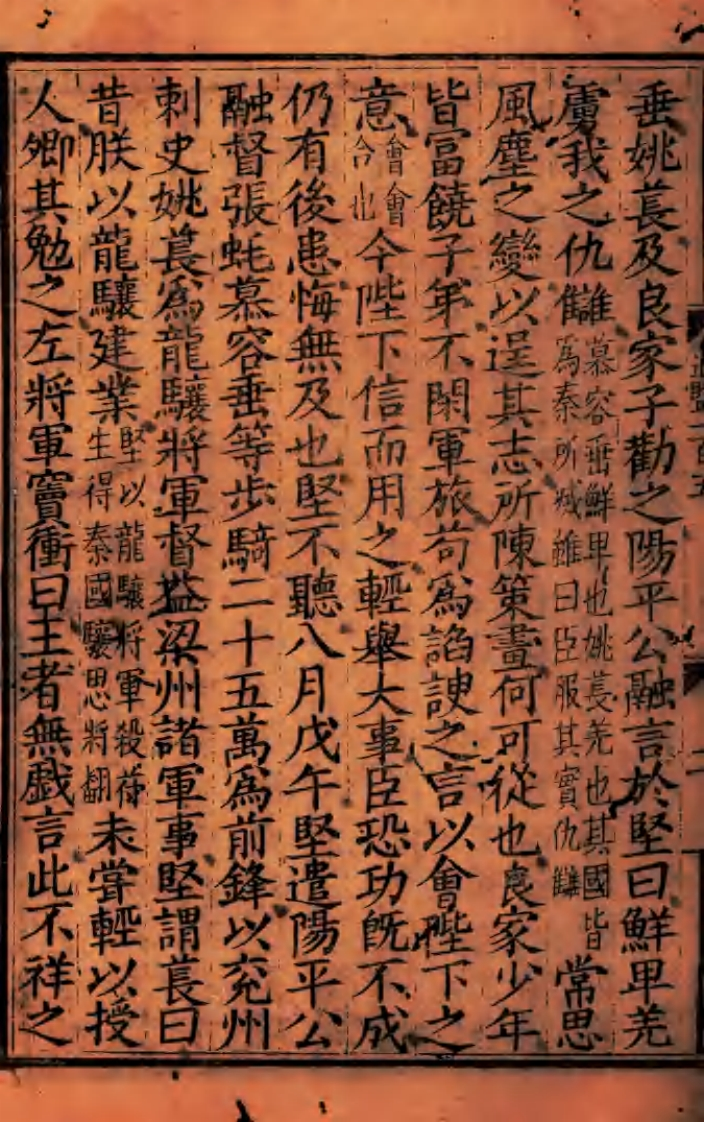 垂姚萇及良家子勸之陽平公融言於堅曰鮮卑羌
虜我之仇讎慕容垂鮮卑也姚萇羌也其國皆爲秦所滅雖曰臣服其實仇讎常思
風塵之變以逞其志所陳策畫何可從也良家少年
皆富饒子弟不閑軍旅苟爲諂諛之言以會陛下之
意會會合也今陛下信而用之輕舉大事臣恐功既不成
仍有後患悔無及也堅不聽八月戊午堅遣陽平公
融督張蚝慕容垂等步騎二十五萬爲前鋒以兖州
刺史姚萇爲龍驤將軍督益梁州諸軍事堅謂萇曰
昔朕以龍驤建業堅以龍驤將軍殺苻生得秦國驤思將翻未嘗輕以授
人卿其勉之左將軍竇衝曰王者無戲言此不祥之